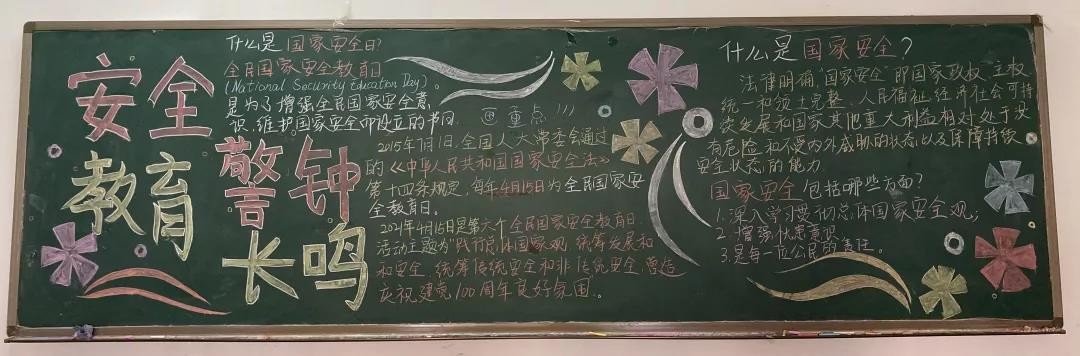 安全
教育
警钟
长鸣
什么是国家安全日?
全民国家安全教育日
(National Security Education Day)。
是为了增强全民国家安全意
识,维护国家安全而设立的节日。
画重点!!!
2015年7月1日,全国人大常委会通过
的《中华人民共和国国家安全法》
第十四条规定,每年4月15日为全民国家安
全教育日。
2021年4月15日是第六个全民国家安全教育日。
活动主题为"践行总体国家观,统筹发展和
和安全,统筹传统安全和非传统安全,营造
庆祝建党100周年良好氛围。
什么是国家安全?
法律明确,"国家安全"即国家政权、主权、
统一和领土完整、人民福祉、经济社会可持
续发展和国家其他重大利益相对处于没
有危险和不受内外威胁的状态,以及保障持续
安全状态的能力
国家安全包括哪些方面?
1.深入学习贯彻总体国家安全观;
2.增强忧患意识
3.是每一位公民的责任。